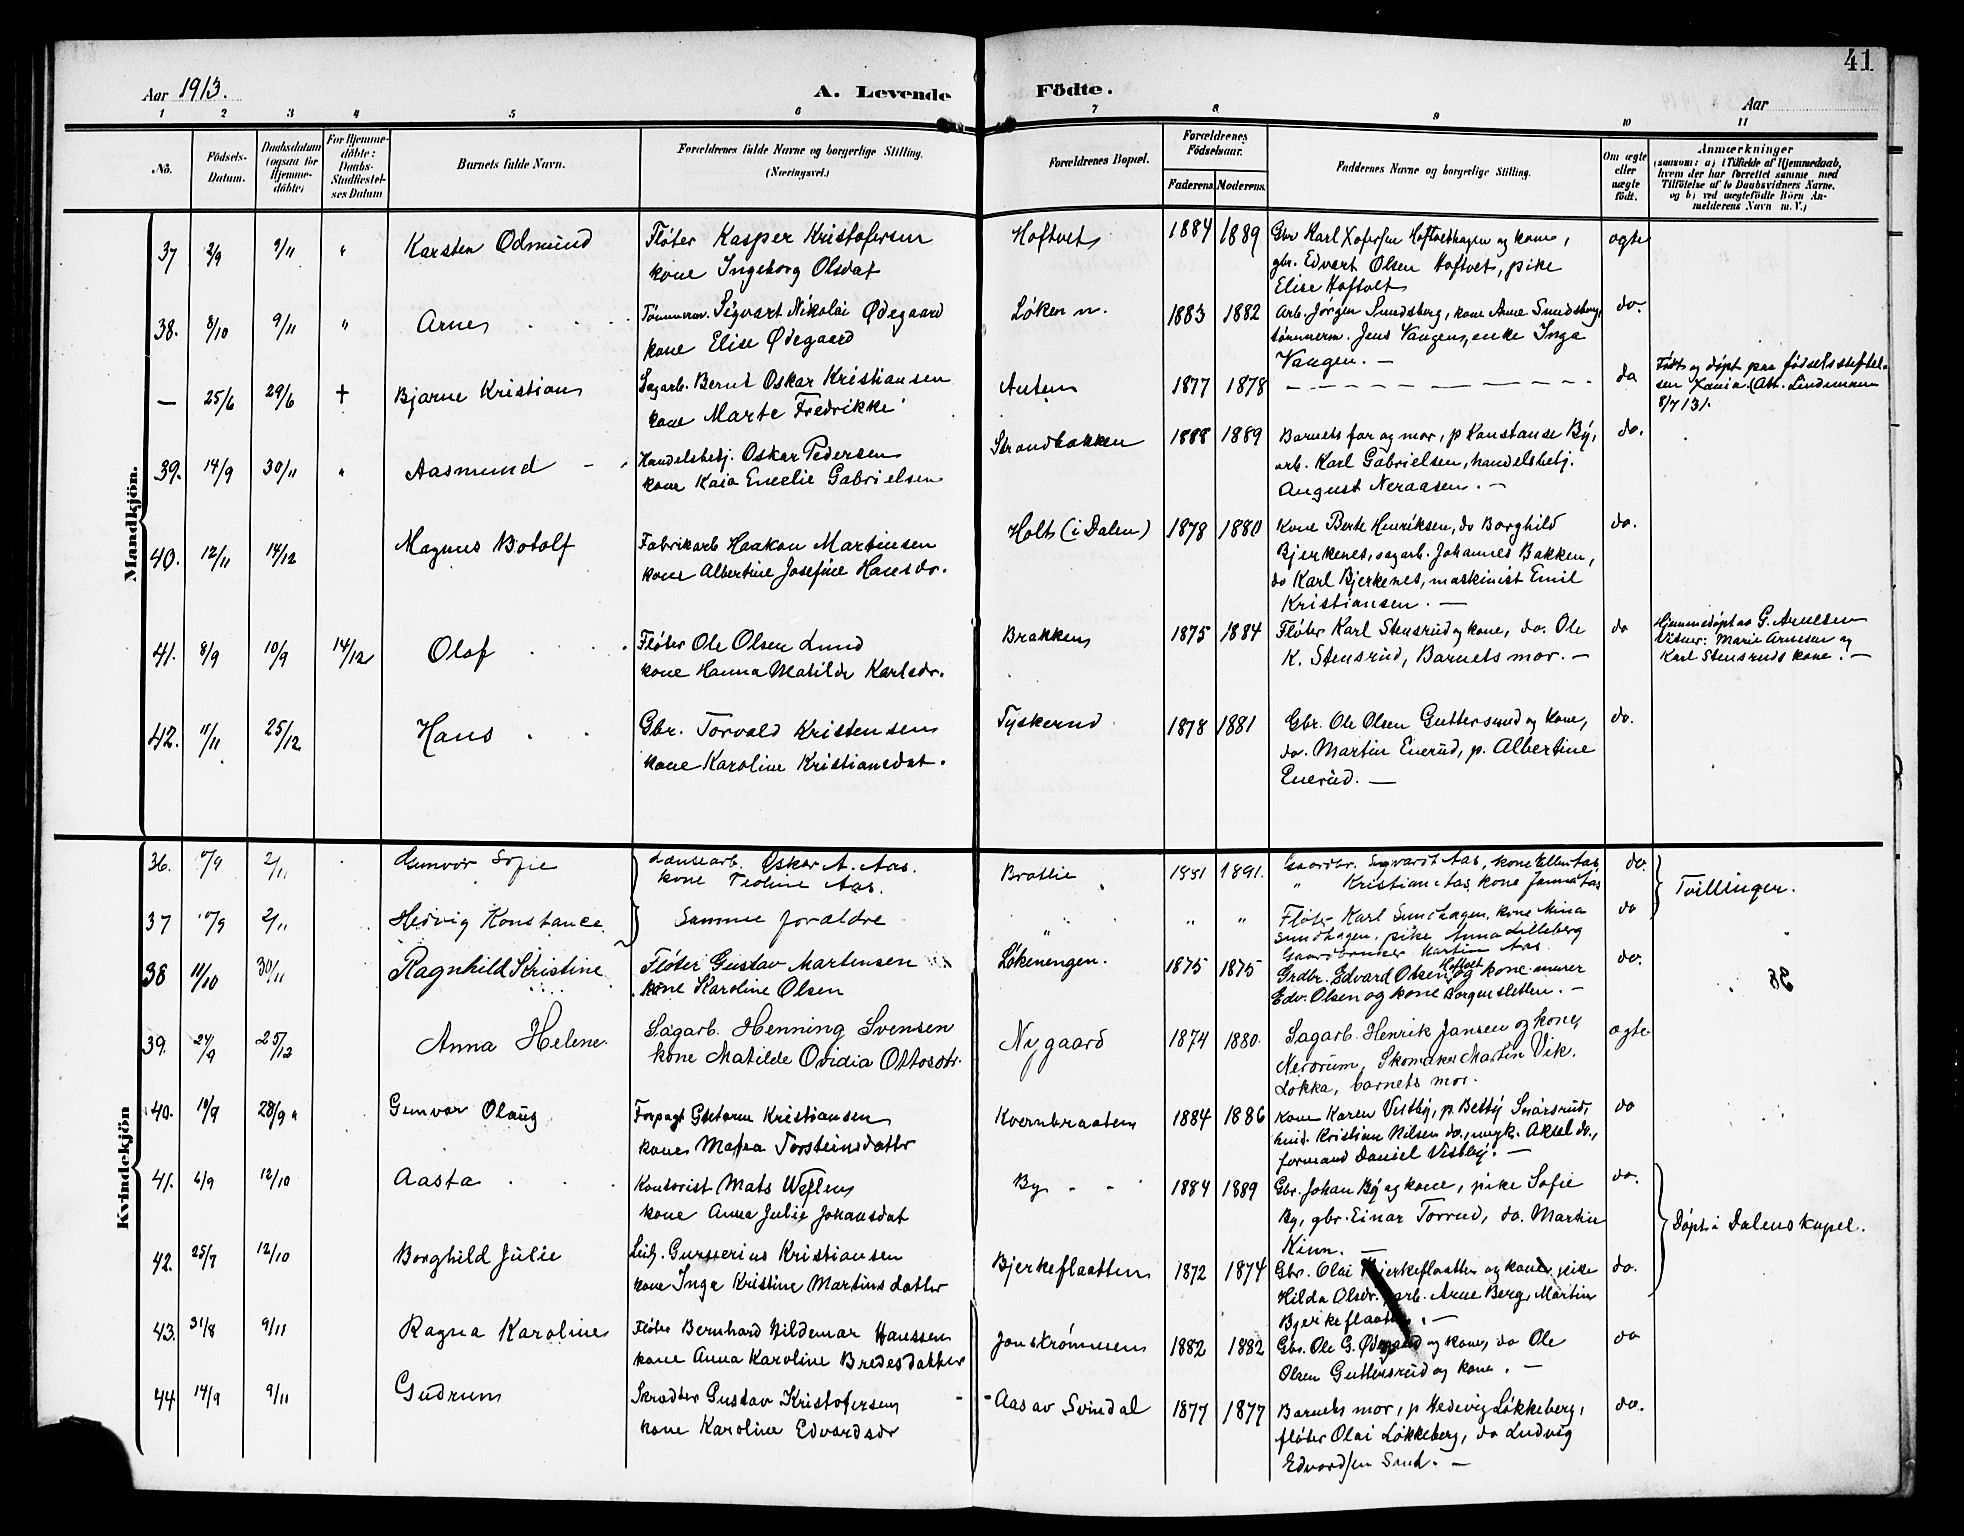 41
Aar 1913.
A. Levende Födte.
Aar
1 2 3 4 5 6 7 8 9 10 11
No.
Födsels-Datum.
Daabsdatum (ogsaa for Hjemme-döbte)
For Hjemme-döbte: Daabs-Stadfæstel-ses Datum
Barnets fulde Navn.
Forældrenes fulde Navne og borgerlige Stilling.
(Næringsvei.)
Forældrenes Bopæl.
Forældrenes Födselsaar.
Faderens. Moderens.
Faddernes Navne og borgerlige Stilling.
Om ægte eller uægte födt.
Anmærkninger
(saasom: a) i Tilfælde af Hjemmedaab,
hvem der har forrettet samme med
Tilföielse af to Daabsvidners Navne.
og b) ved uægtefödte Börn An-
melderens Navn m. V.)
Mandkjön.
37 2/9 9/11 " Karsten Odmund Fløter Kasper Kristofersen Hoftvet 1884 1889 Gbr Karl Xofersen Hoftvethagen og kone, ægte
kone Ingeborg Olsdat gbr. Edvart Olsen Hoftvet, pike
Elise Hoftvet
38. 8/10 9/11 " Arne Tømmerm. Sigvart Nikolai Ødegaard Løken n. 1883 1882 Arb. Jørgen Sundsberg, kone Anne Sundsberg, do.
kone Elise Ødegaard tømmerm. Jens Vangen, enke Inga
Vangen. —
— 25/6 29/6 + Bjarne Kristian Sagarb. Bernt Oskar Kristiansen 1877 1878 — — — do Født og døpt paa fødselsstiftel-
kone Marte Fredrikke sen Xania (Att. Lindemann
8/7 13).
39. 14/9 30/11 " Aasmund Handelsbetj. Oskar Pedersen Strandbakken 1888 1889 Barnets far og mor, p Konstanse By, do.
kone Kaia Emelie Gabrielsen arb. Karl Gabrielsen, handelsbetj.
August Neraasen. —
40. 12/11 14/12 Magnus Botolf Fabrikarb Haakon Martinsen Holt (i Dalen) 1878 1880 Kone Berte Henriksen, do Borghild do.
kone Albertine Josefine Hansdr. Bjerkenes, sagarb. Johannes Bakken,
do Karl Bjerkenes, maskinist Emil
Kristiansen. —
41. 8/9 10/9 14/12 Olaf Fløter Ole Olsen Lund Brakken 1875 1884 Fløter Karl Stensrud og kone, do. Ole do Hjemmedøpt av G. Arnesen
kone Hanna Matilde Karlsdr. K. Stensrud, Barnets mor. — Vitner: Marie Arnesen og
Karl Stensruds kone. —
42. 11/11 25/12 Hans Gbr. Torvald Kristensen Tyskerud 1878 1881 Gbr. Ole Olsen Guttersrud og kone, do.
kone Karoline Kristiansdat. do. Martin Enerud, p. Albertine
Enerud. —
Kvindekjön
36. 2/11 Gunvor Sofie Lænsearb. Oskar A. Aas. Bratlie 1891. Gaardbr. Sigvardt Aas, kone Ellen Aas, do.
kone Teoline Aas. " Kristian Aas, kone Janna Aas
Tvillinger.
37 2/11 Hedvig Konstance Samme forældre " " " Fløter Karl Sundhagen, kone Mina do
Sundhagen, pike Anna Lilleberg
Gaardbruker Martin Aas
38 11/10 30/11 Ragnhild Kristine Fløter Gustav Martinsen Løkenengen. 1875 1875 Grdbr. Edvard Olsen Hoftvet og kone. murer do.
kone Karoline Olsen Edv. Olsen og kone Borgensletten. —
39. 24/9 25/12 Anna Helene Sagarb. Henning Svensen Nygaard 1874 1880. Sagarb. Henrik Jansen og kone, ægte
kone Matilde Ovidia Ottosdtr. Nerdrum, Skomaker Martin Vik.
Løkka, barnets mor.
40. 10/9 28/9 Gunvor Olaug Kristiansen Kvernbraaten 1884 1886 Kone Karen Vistby, p. Betty Snarsrud, do
kone Torsteinsdatter Kristian Nilsen do., ungk. Aksel do.,
formand Daniel Vistby. —
41. 6/9 12/10 Aasta Kontorist Mats Weflen By 1884 1889 Gbr. Johan By og kone, pike Sofie do.
kone Anna Julie Johansdat By, gbr. Einar Torrud, do. Martin
Kinn. —
Døpt i Dalens kapel.
42. 25/7 12/10 Borghild Julie Kristiansen Bjerkeflaatten 1872 1874 Gbr. Olai Bjerkeflaatten og kone, pike do.
kone Inga Kristine Martinsdatter Hilda Olsdr. arb. Arne Berg, Martin
Bjerkeflaatten. —
43. 31/8 9/11 Ragna Karoline Fløter Bernhard Hildemar Hanssen Jonstrømmen 1882 1882 Gbr. Ole G. Ødegaard og kone, do Ole do
kone Anna Karoline Bredesdatter Olsen Guttersrud og kone. —
44 14/9 9/11 Gudrun Skrædder Gustav Kristofersen Aas av Svindal 1877 1877 Barnets mor, p Hedevig Løkkeberg, do.
kone Karoline Edvardsdr fløter Olai Løkkeberg, do Ludvig
Edvardsen Sand. —